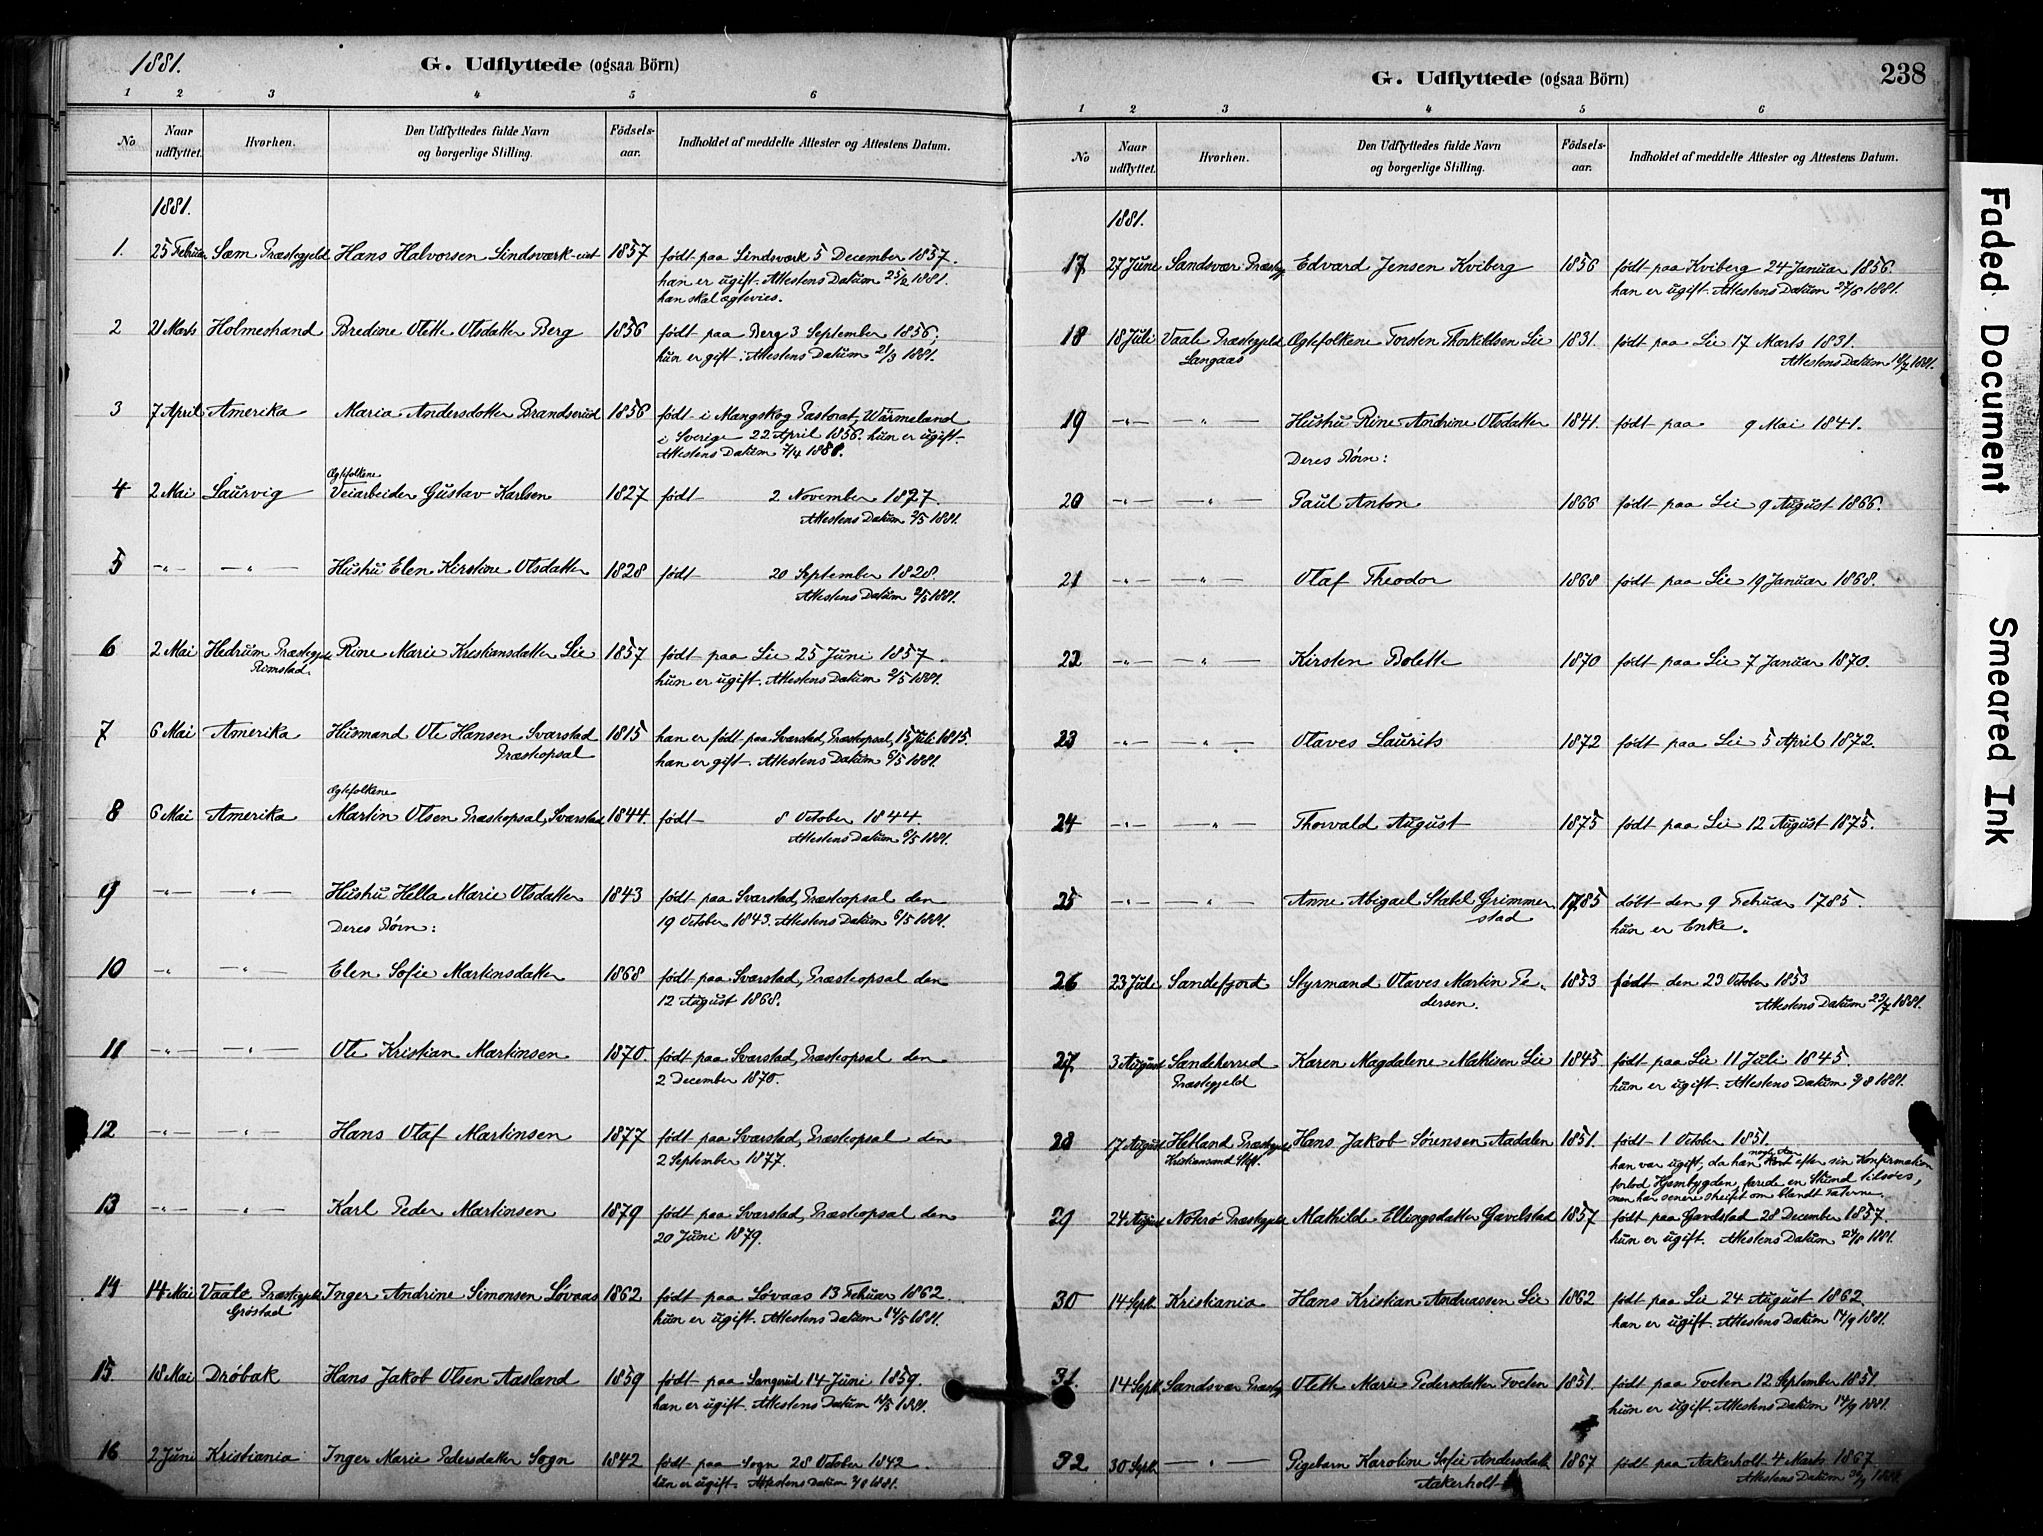 1881.
G. Udflyttede (ogsaa Börn)
1 2 3 4 5 6
No
Naar udflyttet.
Hvorhen.
Den Udflyttedes fulde Navn og borgerlige Stilling.
Födsels-aar.
Indholdet af meddelte Attester og Attestens Datum.
1881.
1. 25 Februar Sæm Præstegjeld Hans Halvorsen Lindsværk-eiet 1857 født paa Lindsværk 5 December 1857.
han er ugift. Attestens Datum 25/2 1881.
han skal ægtevies.
2 21 Marts Holmestrand Bredine Olette Olsdatter Berg 1856 født paa Berg 3 September 1856;
hun er gift. Attestens Datum 21/3 1881.
3 7 April Amerika Maria Andersdotter Brandserud 1856 født i Mangskog Pastorat, Wärmeland
i Sverige 22 April 1856. hun er ugift
Attestens Datum 7/4 1881.
Ægtefolkene
4 2 Mai Laurvig Veiarbeider Gustav Karlsen 1827 født 2 November 1827.
Attestens Datum 2/5 1881.
5 -"- -"- Hustru Elen Kirstine Olsdatter 1828 født 20 September 1828.
Attestens Datum 2/5 1881.
6 2 Mai Hedrum Præstegjeld Rine Marie Kristiansdatter Lie 1857 født paa Lie 25 Juni 1857.
Rimstad. hun er ugift. Attestens Datum 2/5 1881.
7 6 Mai Amerika Husmand Ole Hansen Svarstad 1815 han er født paa Svarstad, Præsteopsal, 15 Juli 1815.
Præsteopsal han er gift. Attestens Datum 6/5 1881.
Ægtefolkene
8 6 Mai Amerika Martin Olsen Præsteopsal, Svarstad 1844. født 8 October 1844.
Attestens Datum 6/5 1881.
9 -"- -"- Hustru Hella Marie Olsdatter 1843 født paa Svarstad, Præsteopsal den
Deres Børn: 19 October 1843. Attestens Datum 6/5 1881.
10 -"- -"- Elen Sofie Martinsdatter 1868 født paa Svarstad, Præsteopsal den
12 August 1868.
11 -"- -"- Ole Kristian Martinsen 1870. født paa Svarstad, Præsteopsal den
2 December 1870.
12 -"- -"- Hans Olaf Martinsen 1877 født paa Svarstad, Præsteopsal den
2 September 1877.
13 -"- -"- Karl Peder Martinsen 1879 født paa Svarstad, Præsteopsal den
20 Juni 1879.
14 14 Mai Vaale Præstegjeld Inger Andrine Simonsen Løvaas 1862 født paa Løvaas 13 Februar 1862.
Grøstad hun er ugift. Attestens Datum 14/5 1881.
15. 18 Mai Drøbak Hans Jakob Olsen Aasland 1859 født paa Langerud 14 Juni 1859.
han er ugift. Attestens Datum 18/5 1881.
16 2 Juni Kristiania Inger Marie Pedersdatter Sogn 1842 født paa Sogn 28 October 1842.
hun er ugift. Attestens Datum 2/6 1881.
G. Udflyttede (ogsaa Börn)
238
1 2 3 4 5 6
No
Naar udflyttet.
Hvorhen.
Den Udflyttedes fulde Navn og borgerlige Stilling.
Födsels-aar.
Indholdet af meddelte Attester og Attestens Datum.
1881.
17 27 June Sandsvær Præstegj Edvard Jensen Kviberg 1856 født paa Kviberg 24 Januar 1856.
han er ugift. Attestens Datum 27/6 1881.
18 18 Juli Vaale Præstegjeld Ægtefolkene Torsten Thorkildsen Lie 1831. født paa Lie 17 Marts 1831.
Langaas Attestens Datum 18/7 1881.
19 -"- -"- Hustru Rine Andrine Olsdatter 1841. født paa 9 Mai 1841.
Deres Børn:
20 -"- -"- Paul Anton 1866 født paa Lie 9 August 1866.
21 -"- -"- Olaf Theodor 1868 født paa Lie 19 Januar 1868.
22 -"- -"- Kirsten Bolette 1870 født paa Lie 7 Januar 1870.
23 -"- -"- Olaves Laurits 1872 født paa Lie 5 April 1872.
24 -"- -"- Thorvald August 1875 født paa Lie 12 August 1875.
25 -"- -"- Anne Abigael Stabel Grimmer 1785 døbt den 9 Februar 1785.
stad hun er Enke.
26 23 Juli Sandefjord Styrmand Olaves Martin Pe- 1853 født den 23 October 1853
dersen. Attestens Datum 23/7 1881.
27 3 August Sandeherred Karen Magdalene Mathisen Lie 1845 født paa Lie 11 Juli 1845
Præstegjeld hun er ugift. Attestens Datum 3/8 1881.
28 17 August Hetland Præstegjeld Hans Jakob Sørensen Aadalen 1851. født 1 October 1851.
Kristiansand Stift. han var ugift, da han noget kort efter sin Konfirmation
forlod Hjembygden, farede en Stund tilsøes,
men har senere streifet om blandt Taterne.
29 24 August Nøterø Præstegjeld Mathilde Ellingsdatter Gavelstad 1857 født paa Gavelstad 28 December 1857.
hun er ugift. Attestens Datum 24/8 1881.
30 14 Septb Kristiania Hans Kristian Andreassen Lie 1862 født paa Lie 24 August 1862
han er ugift. Attestens Datum 14/9 1881.
31. 14 Septb. Sandsvær Præstegj Olette Marie Pedersdatter Tveten 1851. født paa Tveten 12 September 1851
hun er ugift. Attestens Datum 14/9 1881.
32 30 Septb -"- Pigebarn Karoline Sofie Andersdatt 1867 født paa Aakerholt 4 Marts 1867
Aakerholt Attestens Datum 30/9 1881.
Faded Document
Smeared Ink